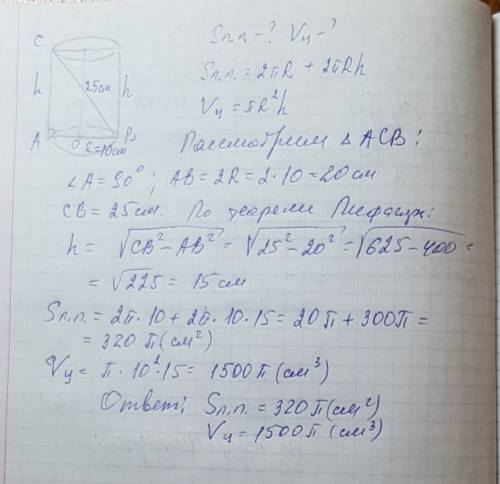 Sп.п. - ? Vц - ?
C
h 25см h
Sп.п. = 2πR + 2πRh
Vц = πR²h
A O R=10см B
Рассмотрим △ ACB:
∠A = 90°; AB = 2R = 2·10 = 20 см
CB = 25 см. По теореми Пифагора:
h = √CB² - AB² = √25² - 20² = √625 - 400 =
= √225 = 15 см
Sп.п. = 2π·10 + 2π·10·15 = 20π + 300π =
= 320π (см²)
Vц = π·10²·15 = 1500π (см³)
Ответ: Sп.п. = 320π (см²)
Vц = 1500π (см³)